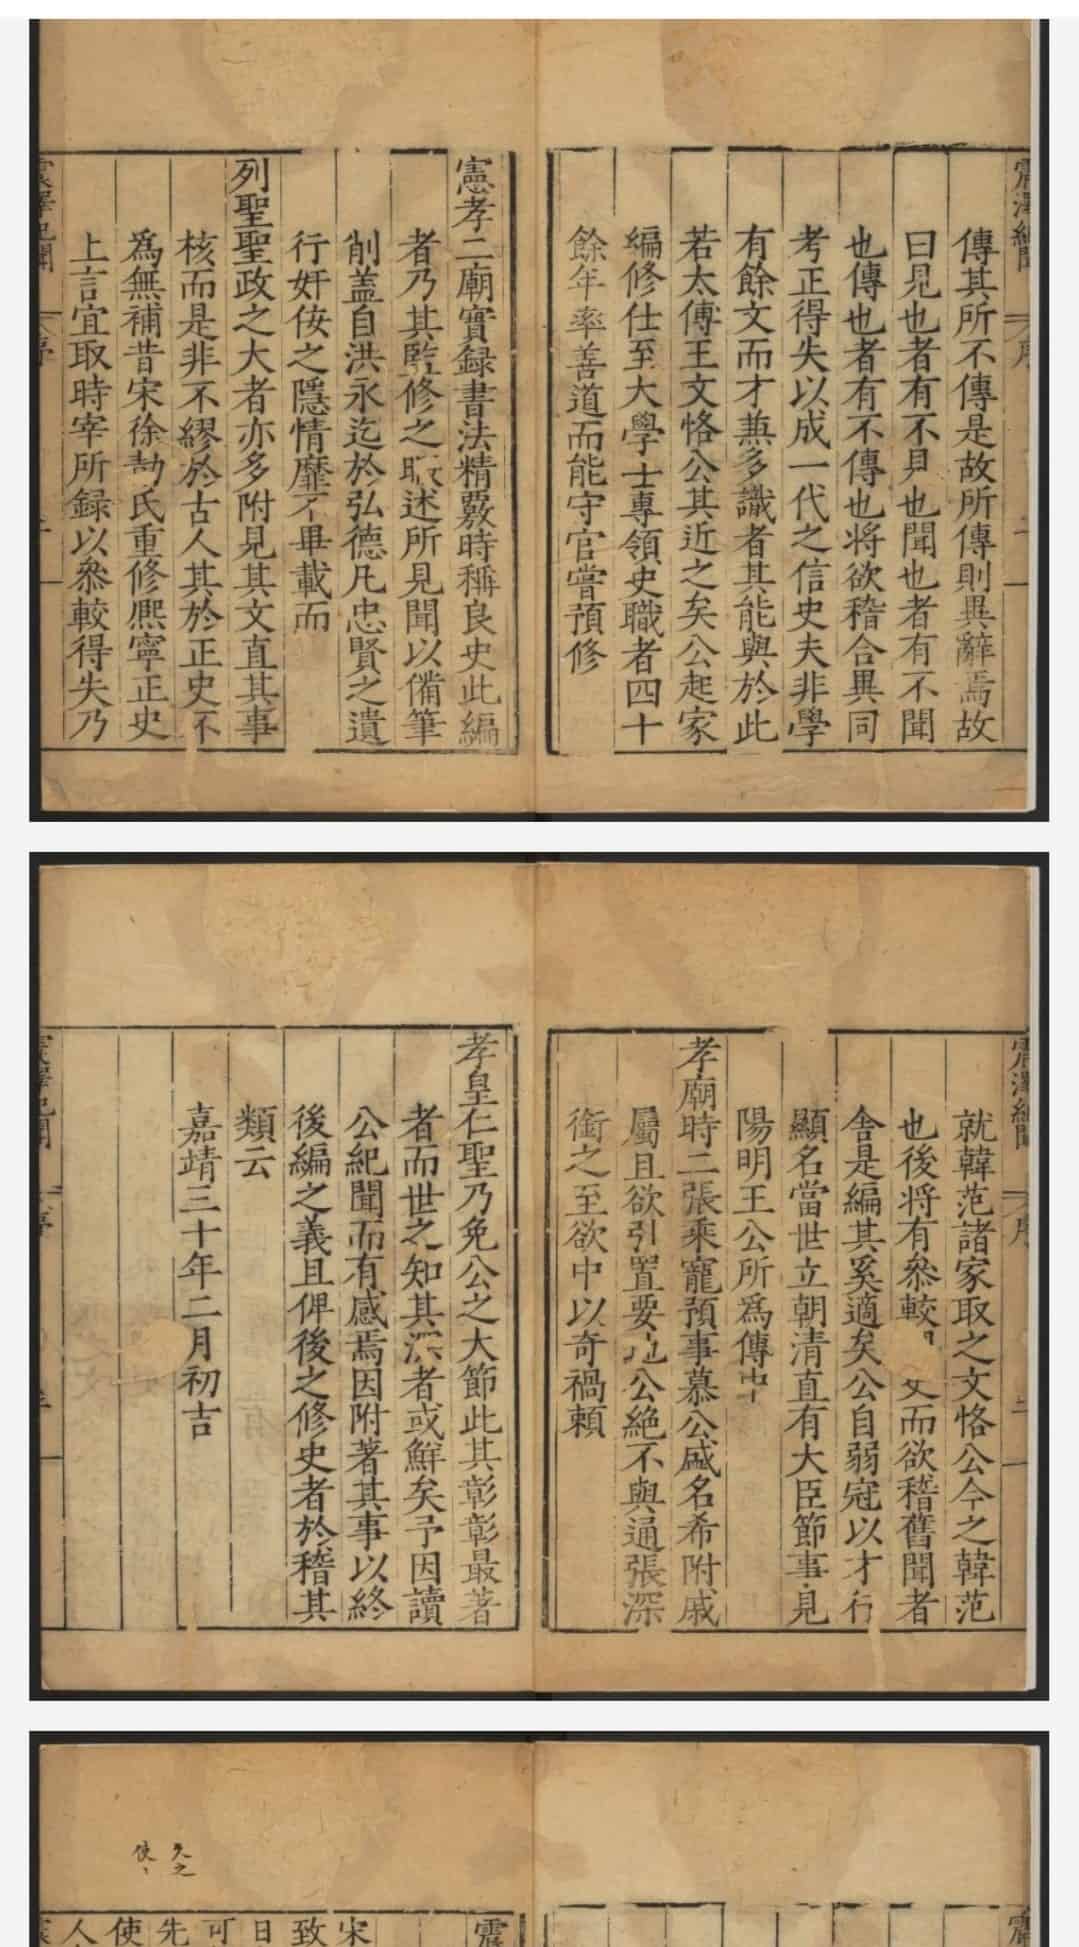 傳其所不傳是故所傳則異辭焉故
曰見也者有不見也聞也者有不聞
也傳也者有不傳也将欲稽合異同
考正得失以成一代之信史夫非學
有餘文而才兼多識者其能與於此
若太傳王文恪公其近之矣公起家
編修仕至大學士專領史職者四十
餘年率善道而能守官嘗預修
憲孝二廟實録書法精覈時稱良史此編
者乃其監修之 述所見聞以備筆
削盖自洪永迄於弘德凡忠賢之遺
行奸佞之隱情靡不畢載而
列聖聖政之大者亦多附見其文直其事
核而是非不繆於古人其於正史不
為無補昔宋徐勣氏重修熈寧正史
上言宜取時宰所録以叅較得失乃
就韓范諸家取之文恪公今之韓范
也後将有叅較 文而欲稽舊聞者
舍是編其奚適矣公自弱冠以才行
顯名當世立朝清直有大臣節事見
陽明王公所為傳中
孝廟時二張乘寵預事慕公盛名希附戚
屬且欲引置要地公絶不與通張深
銜之至欲中以奇禍頼
孝皇仁聖乃免公之大節此其彰彰最著
者而世之知其深者或鮮矣予因讀
公紀聞而有感焉因附著其事以終
後編之義且俾後之修史者於稽其
類云
嘉靖三十年二月初吉
失之
使
震
宋
致
日
可
先
使
人